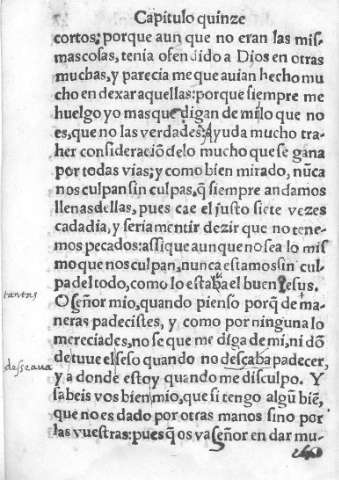 Capitulo quinze
cortos; porque aun que no eran las mis-
mas cosas, tenia ofendido a Dios en otras
muchas, y parecia me que auian hecho mu
cho en dexar aquellas: porque siempre me
huelgo yo mas que digan de mi lo que no
es, que no las verdades. Ayuda mucho tra-
her consideraciõ de lo mucho que se gana
por todas vias; y como bien mirado, nũca
nos culpan sin culpas, q̃ siempre andamos
llenas dellas, pues cae el justo siete vezes
cada dia, y seria mentir dezir que no tene-
mos pecados: assi que aunque no sea lo mis
mo que nos culpan, nunca estamos sin cul
pa del todo, como lo estaba el buen Jesus.
tantas
O señor mio, quando pienso porq̃ de ma-
neras padecistes, y como por ninguna lo
mereciades, no se que me diga de mi, ni dõ
desseava
de tuue el seso quando no descaba padecer,
y a donde estoy quando me disculpo. Y
sabeis vos bien mio, que si tengo algũ biẽ,
que no es dado por otras manos sino por
las vuestras: pues q̃ os va señor en dar mu-